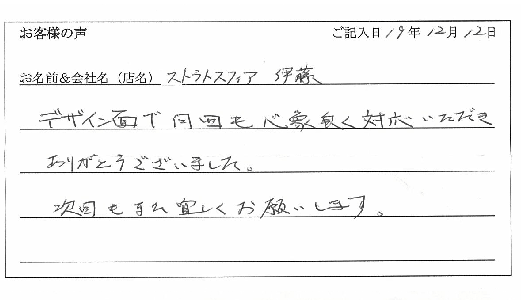 お客様の声 ご記入日 19年 12月 12日
お名前&会社名(店名) ストラトスフィア 伊藤
デザイン面で何回も心象良く対応いただき
ありがとうございました。
次回もまた宜しくお願いします。